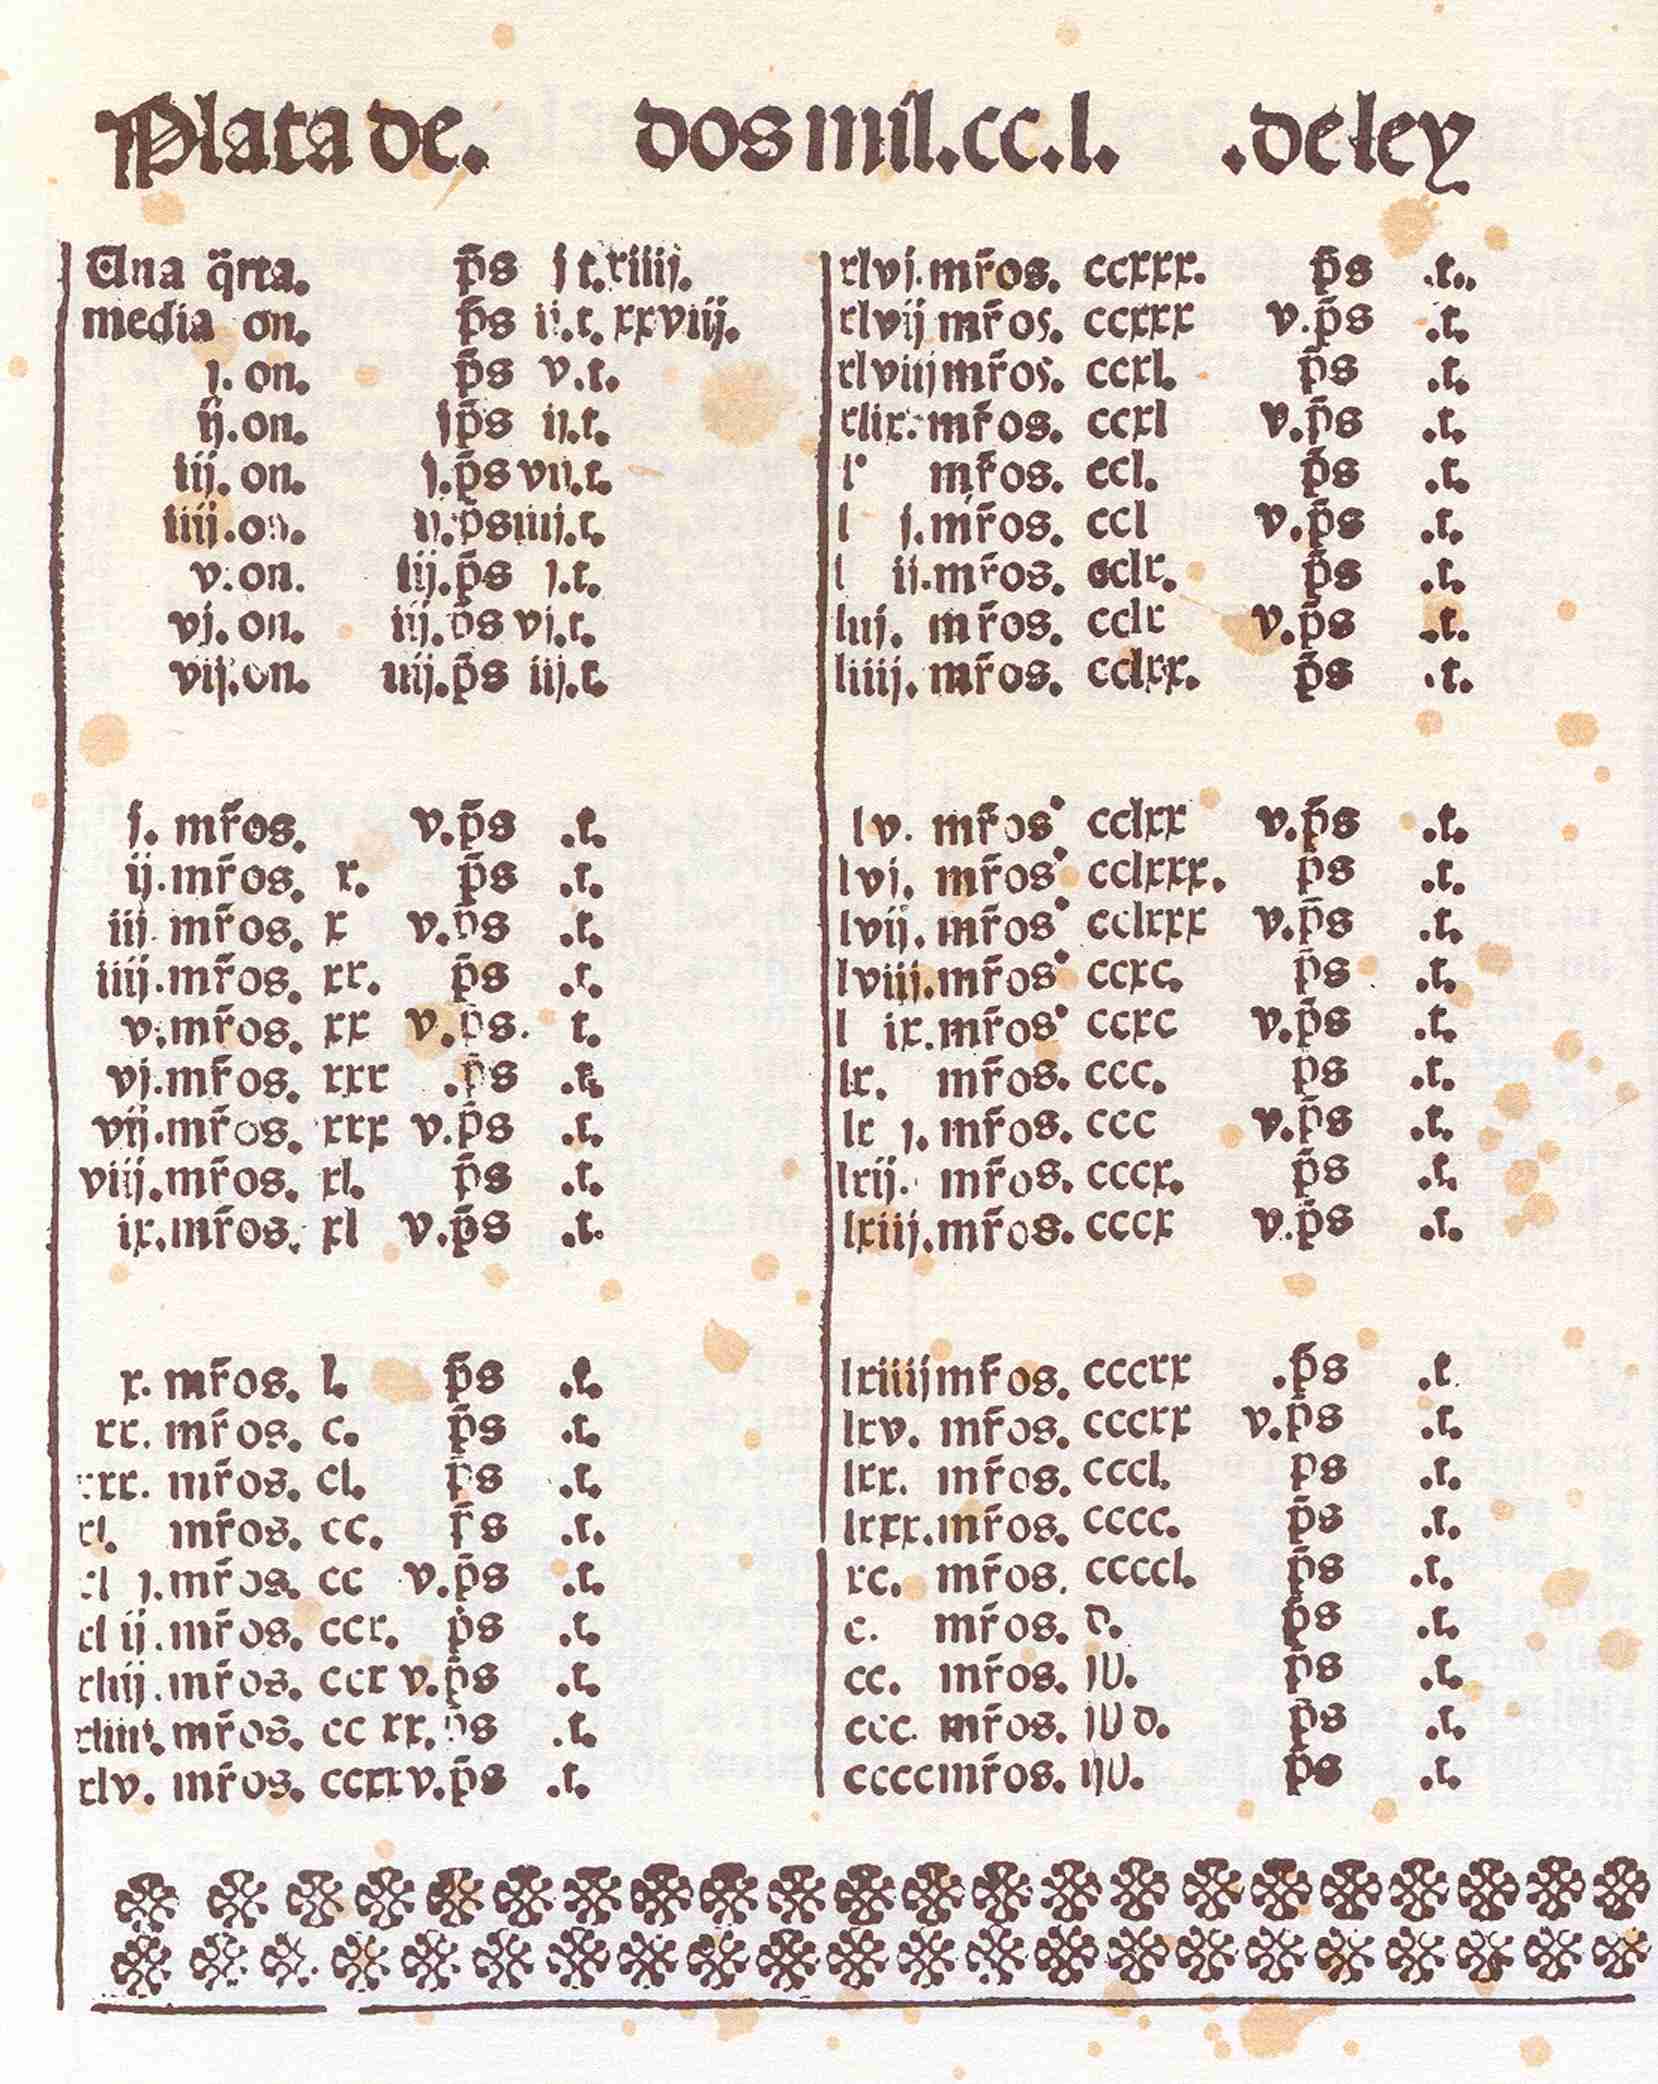 Plata de. dos mil.cc.l. .de ley
Una q̄rta. p̄s j t.xiiij.
media on. p̄s ij.t.xxviij.
j. on. p̄s v.t.
ij.on. j p̄s ij.t.
iij. on. j.p̄s vij.t.
iiij.on. ij.p̄s iiij.t.
v.on. iij.p̄s j.t.
vj. on. iij.p̄s vj.t.
vij.on. iiij.p̄s iij.t.
j. mr̄os. v.p̄s .t.
ij.mr̄os. x. p̄s .t.
iij. mr̄os. x v.p̄s .t.
iiij.mr̄os. xx. p̄s .t.
v.mr̄os. xx v.p̄s. t.
vj.mr̄os. xxx .p̄s .t.
vij.mr̄os. xxx v.p̄s .t.
viij.mr̄os. xl. p̄s .t.
ix.mr̄os. xl v.p̄s .t.
x. mr̄os. l. p̄s .t.
xx. mr̄os. c. p̄s .t.
xxx. mr̄os. cl. p̄s .t.
xl. mr̄os. cc. p̄s .t.
xl j.mr̄os. cc v.p̄s .t.
xl ij.mr̄os. ccx. p̄s .t.
xliij.mr̄os. ccx v.p̄s .t.
xliiij.mr̄os. cc xx. p̄s .t.
xlv. mr̄os. ccxx v.p̄s .t.
xlvj.mr̄os. ccxxx. p̄s .t.
xlvij mr̄os. ccxxx v.p̄s .t.
xlviij mr̄os. ccxl. p̄s .t.
xlix.mr̄os. ccxl v.p̄s .t.
l mr̄os. ccl. p̄s .t.
l j.mr̄os. ccl v.p̄s .t.
l ij.mr̄os. cclx. p̄s .t.
liij. mr̄os. cclx v.p̄s .t.
liiij. mr̄os. cclxx. p̄s .t.
lv. mr̄os. cclxx v.p̄s .t.
lvj. mr̄os. cclxxx. p̄s .t.
lvij. mr̄os. cclxxx v.p̄s .t.
lviij.mr̄os. ccxc. p̄s .t.
l ix.mr̄os. ccxc v.p̄s .t.
lx. mr̄os. ccc. p̄s .t.
lx j. mr̄os. ccc v.p̄s .t.
lxij. mr̄os. cccx. p̄s .t.
lxiij.mr̄os. cccx v.p̄s .t.
lxiiij mr̄os. cccxx .p̄s .t.
lxv. mr̄os. cccxx v.p̄s .t.
lxx. mr̄os. cccl. ps .t.
lxxx.mr̄os. cccc. p̄s .t.
xc. mr̄os. ccccl. p̄s .t.
c. mr̄os. D. p̄s .t.
cc. mr̄os. jU. p̄s .t.
ccc mr̄os. jU D. p̄s .t.
cccc mr̄os. ijU. p̄s .t.